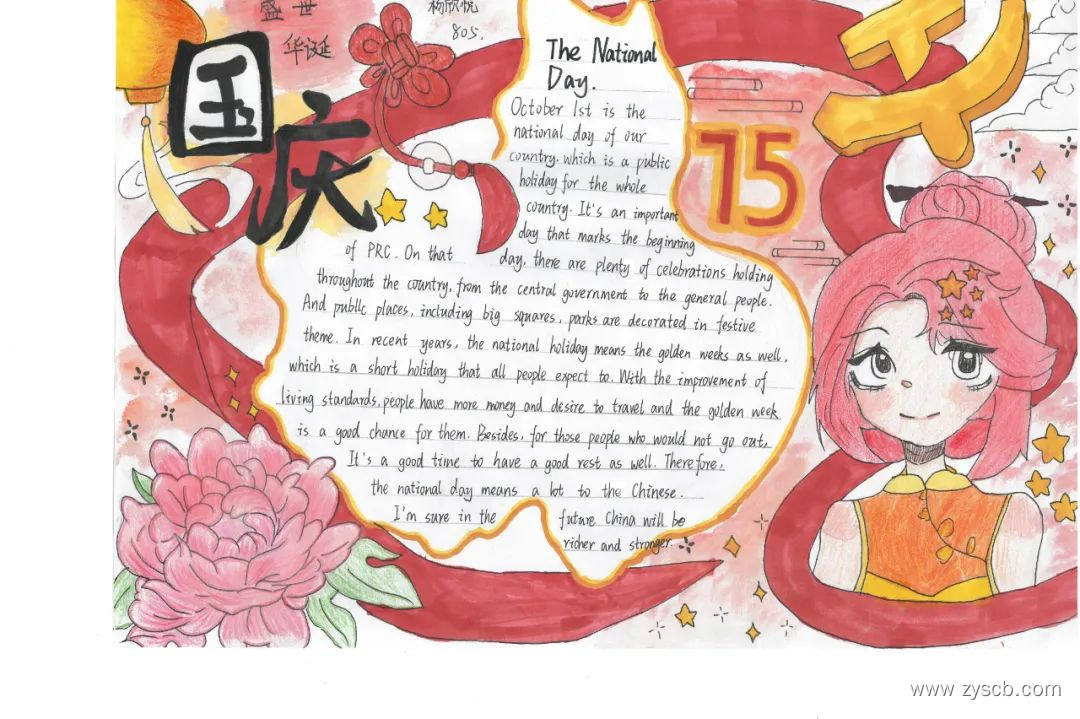 盛世
华诞
杨欣悦
805.
国
庆
The National
Day.
October 1st is the
national day of our
country. which is a public
holiday for the whole
country. It's an important
day that marks the beginning
of PRC. On that day, there are plenty of celebrations holding
throughout the country, from the central government to the general people.
And public places, including big squares, parks are decorated in festive
theme. In recent years, the national holiday means the golden weeks as well,
which is a short holiday that all people expect to. With the improvement of
living standards, people have more money and desire to travel and the golden week
is a good chance for them. Besides, for those people who would not go out,
It's a good time to have a good rest as well. Therefore,
the national day means a lot to the Chinese.
I'm sure in the future China will be
richer and stronger.
75
www.zyscb.com